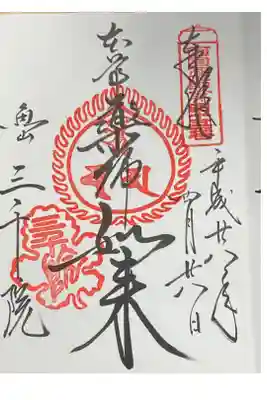 奉拝
平成廿八年
四月廿八日
本尊薬師如来
魚山三千院